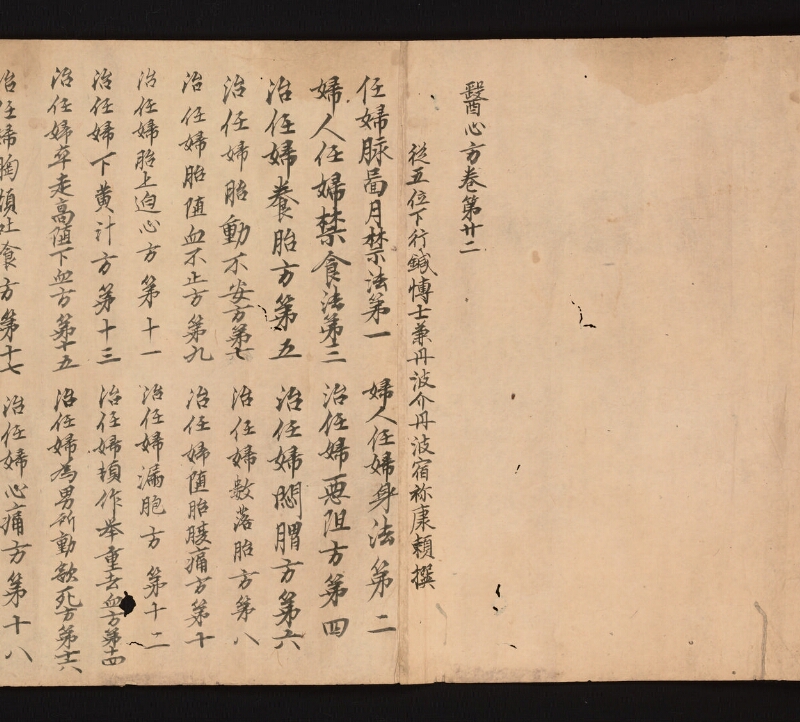 醫心方卷第廿二
従五位下行鍼博士兼丹波介丹波宿祢康頼撰
任婦脉啚月禁法第一 婦人任婦身法第二
婦人任婦禁食法第三 治任婦悪阻方第四
治任婦養胎方第五 治任婦悶膶方第六
治任婦胎動不安方第七 治任婦數落胎方第八
治任婦胎堕血不止方第九 治任婦堕胎腹痛方第十
治任婦胎上迫心方第十一 治任婦漏胞方第十二
治任婦下黄汁方第十三 治任婦頓作举重去血方第十四
治任婦卒走高堕下血方第十五 治任婦為男所動欲死方第十六
治任婦胸煩吐食方第十七 治任婦心痛方第十八